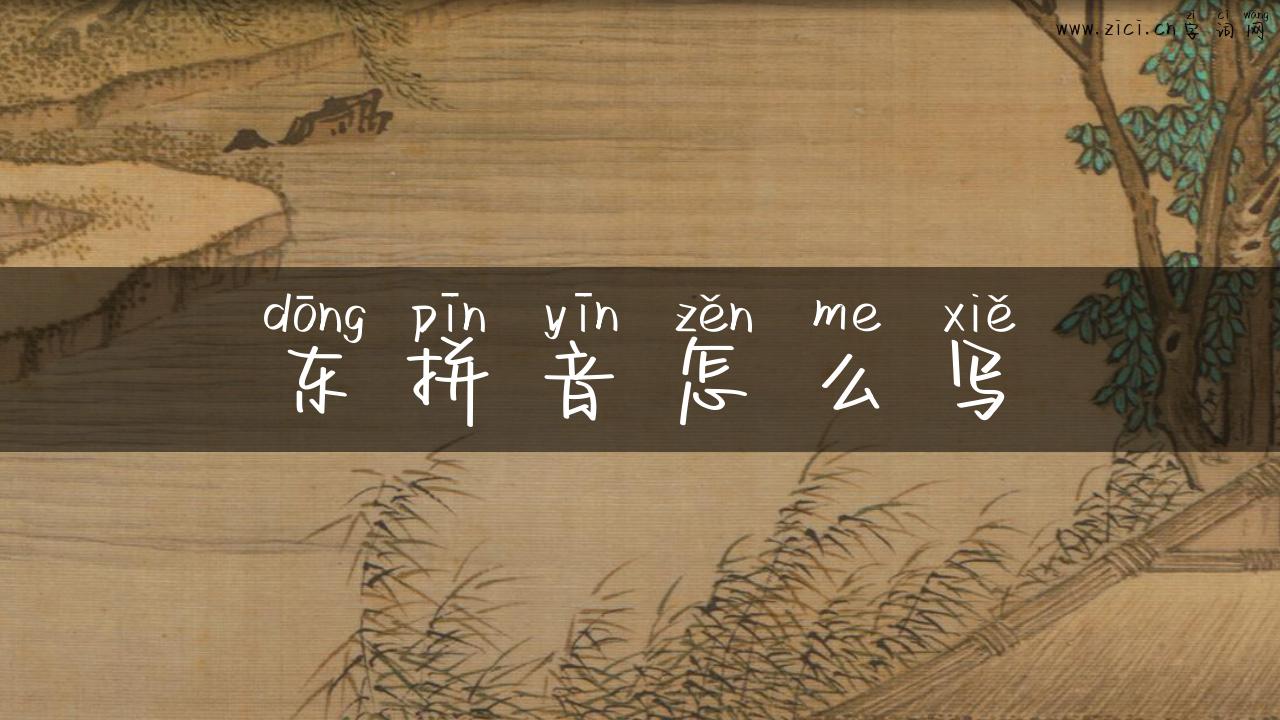 zì cí wǎng
www.zici.cn字词网
dōng pīn yīn zěn me xiě
东拼音怎么写